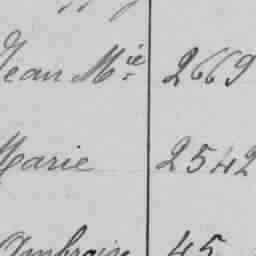 Jean Mie 2669
Marie 2542
Ambroise 45